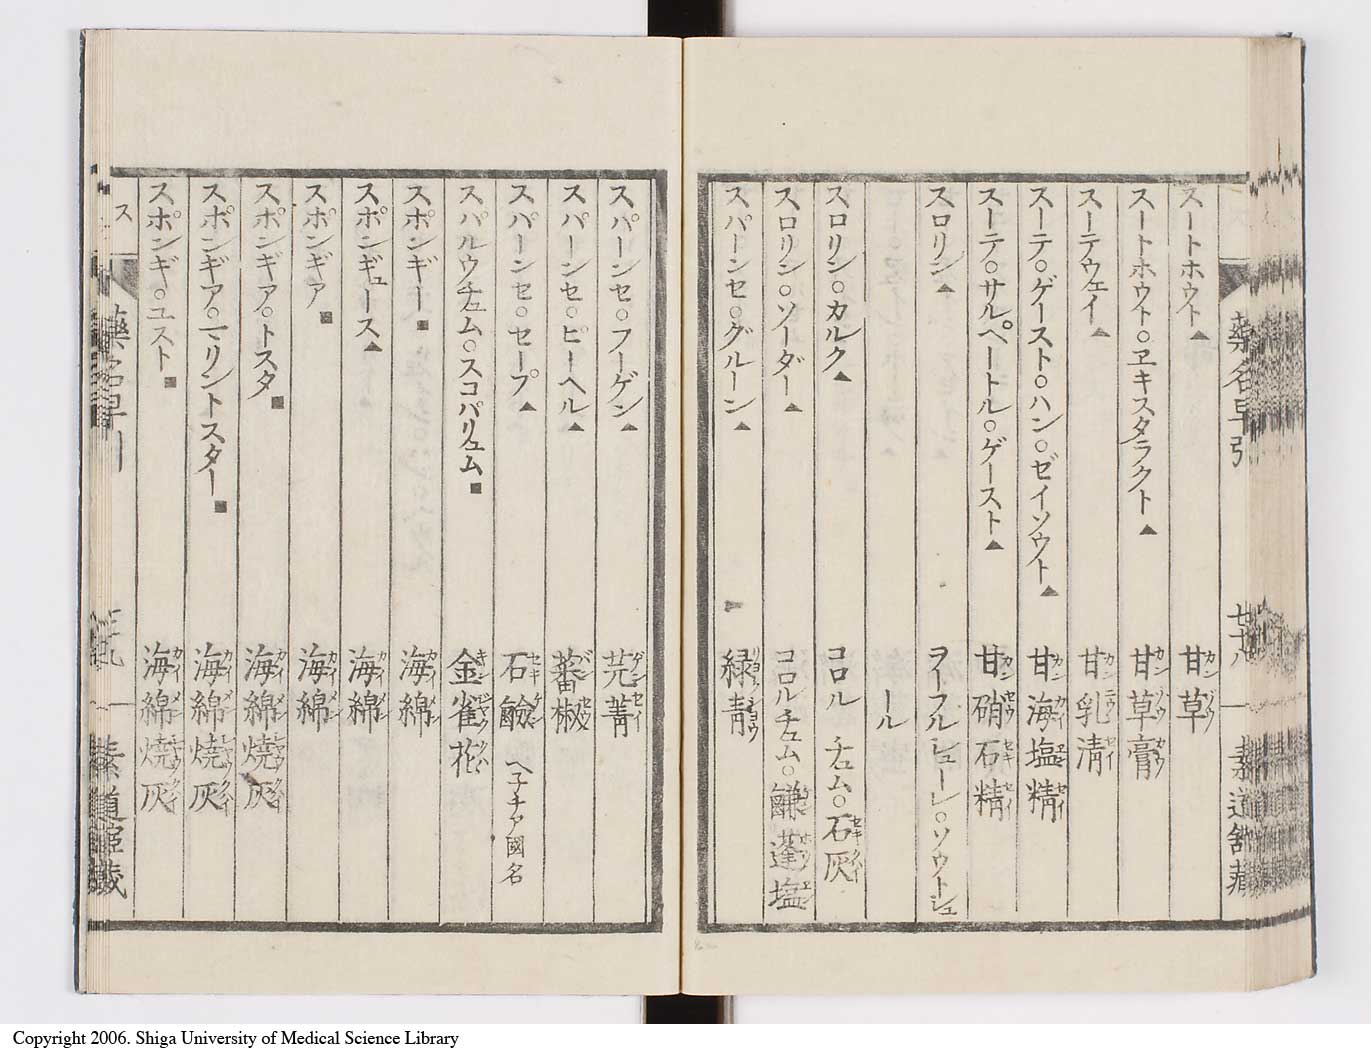 藥名早引 七十八 蒼道舘藏
スートホウト▲ 甘草
スートホウト○ヱキスタラクト▲ 甘草膏
スーテウェイ▲ 甘乳清
スーテ○ゲースト○ハン○ゼイソウト▲ 甘海塩精
スーテ○サルペートル○ゲースト▲ 甘硝石精
スロリン▲ ヲーフルシューレ○ソウトシュ
ール
スロリン○カルク▲ コロルチュム○石灰
スロリン○ソーダー▲ コロルチュム○鹻蓬塩
スパーンセ○グルーン▲ 緑青
スパーンセ○フーゲン▲ 芫菁
スパーンセ○ピーヘル▲ 蕃椒
スパーンセ○セープ▲ 石鹸 ヘ子チア國名
スパルウチュム○スコパリュム■ 金雀花
スポンギー■ 海綿
スポンギュース▲ 海綿
スポンギア■ 海綿
スポンギア○トスタ■ 海綿焼灰
スポンギア○マリントスター■ 海綿焼灰
スポンギ○ユスト■ 海綿焼灰
ス 藥名早引
Copyright 2006. Shiga University of Medical Science Library